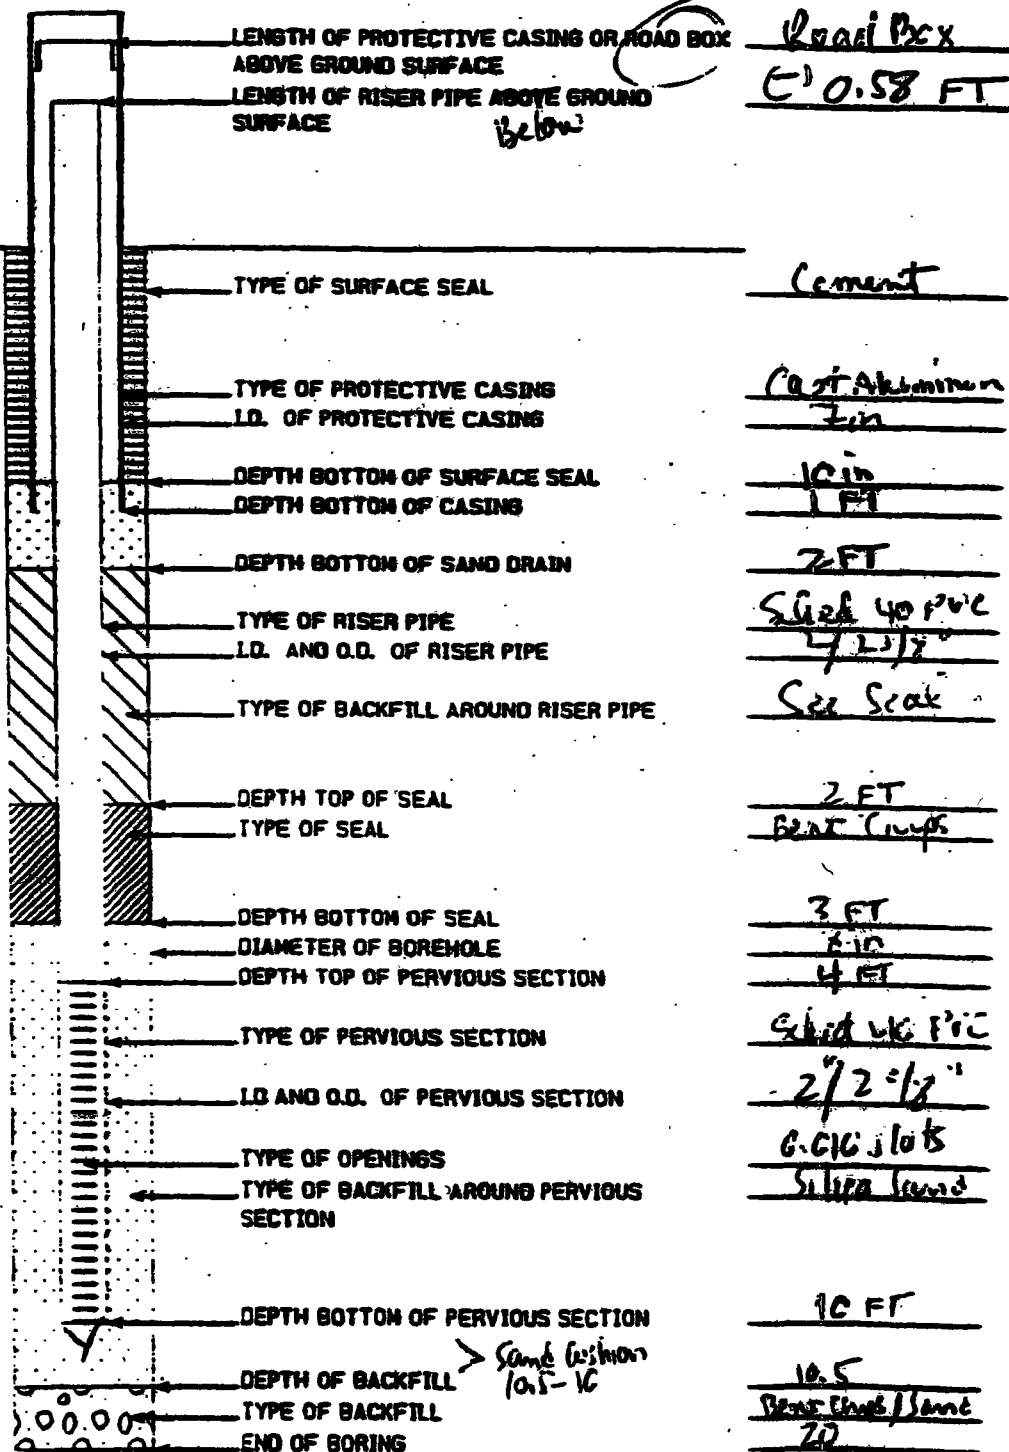 LENGTH OF PROTECTIVE CASING OR ROAD BOX Road Box
ABOVE GROUND SURFACE
LENGTH OF RISER PIPE ABOVE GROUND (-) 0.58 FT
SURFACE Below
TYPE OF SURFACE SEAL Cement
TYPE OF PROTECTIVE CASING Cast Aluminum
I.D. OF PROTECTIVE CASING 7in
DEPTH BOTTOM OF SURFACE SEAL 10 in
DEPTH BOTTOM OF CASING 1 FT
DEPTH BOTTOM OF SAND DRAIN 2 FT
TYPE OF RISER PIPE Sched 40 PVC
I.D. AND O.D. OF RISER PIPE
TYPE OF BACKFILL AROUND RISER PIPE See
DEPTH TOP OF SEAL 2 FT
TYPE OF SEAL Bent Chips
DEPTH BOTTOM OF SEAL 3 FT
DIAMETER OF BOREHOLE in
DEPTH TOP OF PERVIOUS SECTION 4 FT
TYPE OF PERVIOUS SECTION Sched 40 PVC
I.D AND O.D. OF PERVIOUS SECTION
TYPE OF OPENINGS slots
TYPE OF BACKFILL AROUND PERVIOUS Silica Sand
SECTION
DEPTH BOTTOM OF PERVIOUS SECTION 10 FT
> Sand Cushion
10.5-10
DEPTH OF BACKFILL 10.5
TYPE OF BACKFILL Bent Chips/Sand
END OF BORING 20